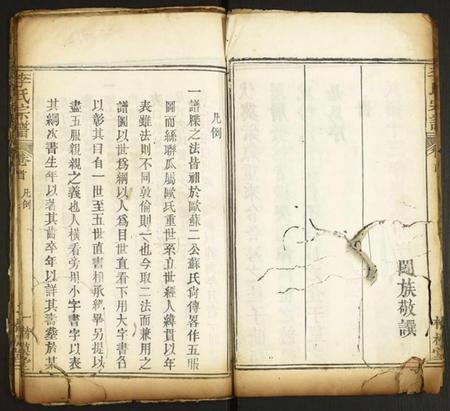 闔族敬譔
凡例
一譜牒之法皆祖於歐蘇二公蘇氏尚傳畧作五服
圖而絲聯瓜屬歐氏重世系立世經人緯貫以年
表雖法則不同敦倫則一也今取二法而兼用之
譜圖以世爲綱以人爲目世直看下用大字書各
以彰其目自一世至五世直書相承統畢另提以
盡五服親親之義也人橫看旁用小字書字以表
其綱次書生年以著其齒卒年以詳其壽塋於某
李氏宗譜
卷首
凡例